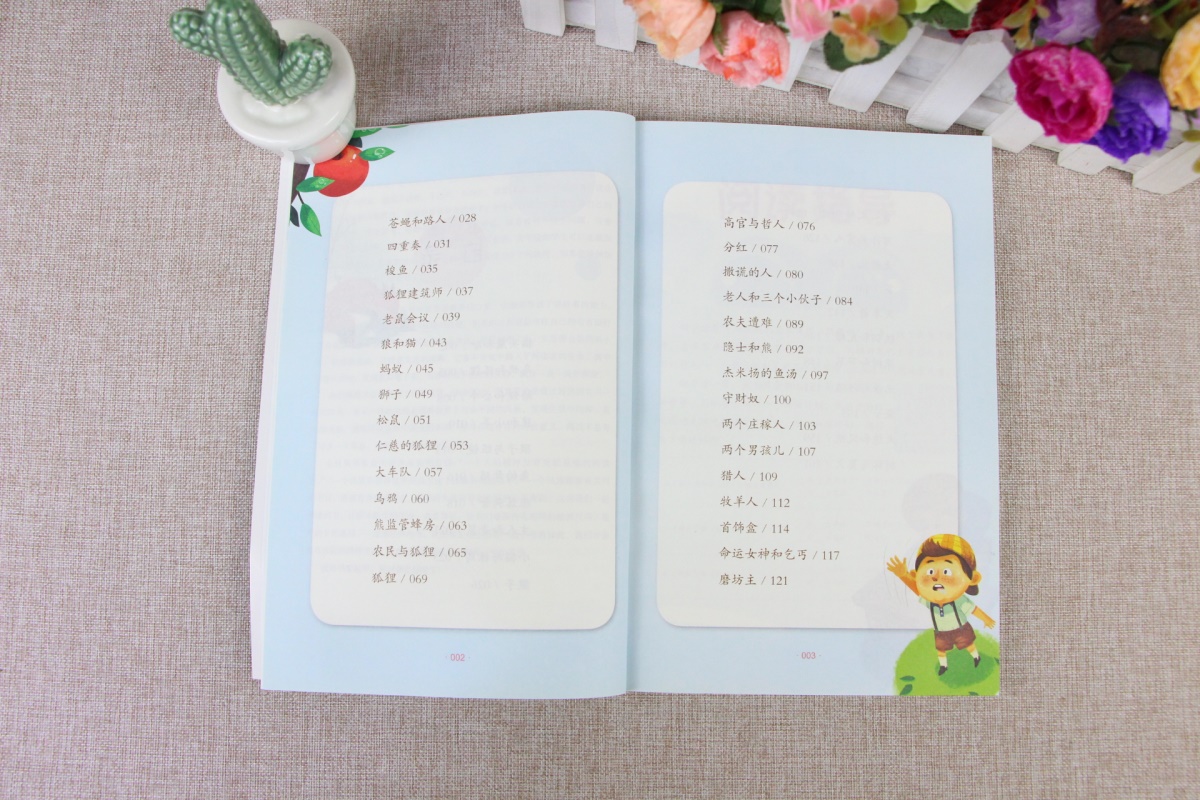 苍蝇和路人 / 028
四重奏 / 031
梭鱼 / 035
狐狸建筑师 / 037
老鼠会议 / 039
狼和猫 / 043
蚂蚁 / 045
狮子 / 049
松鼠 / 051
仁慈的狐狸 / 053
大车队 / 057
乌鸦 / 060
熊监管蜂房 / 063
农民与狐狸 / 065
狐狸 / 069
002
高官与哲人 / 076
分红 / 077
撒谎的人 / 080
老人和三个小伙子 / 084
农夫遭难 / 089
隐士和熊 / 092
杰米扬的鱼汤 / 097
守财奴 / 100
两个庄稼人 / 103
两个男孩儿 / 107
猎人 / 109
牧羊人 / 112
首饰盒 / 114
命运女神和乞丐 / 117
磨坊主 / 121
003